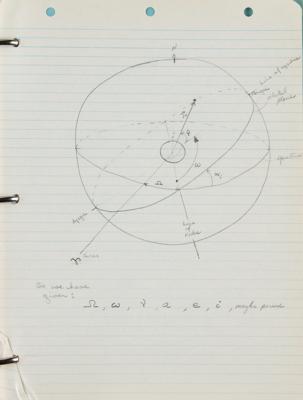 N
Line of apsides
Perigee
orbital
plane
equator
ν
ω
Ω
i
Apogee
line
of
nodes
♈ Aries
So we have
given:
Ω, ω, ν, a, e, i, maybe period